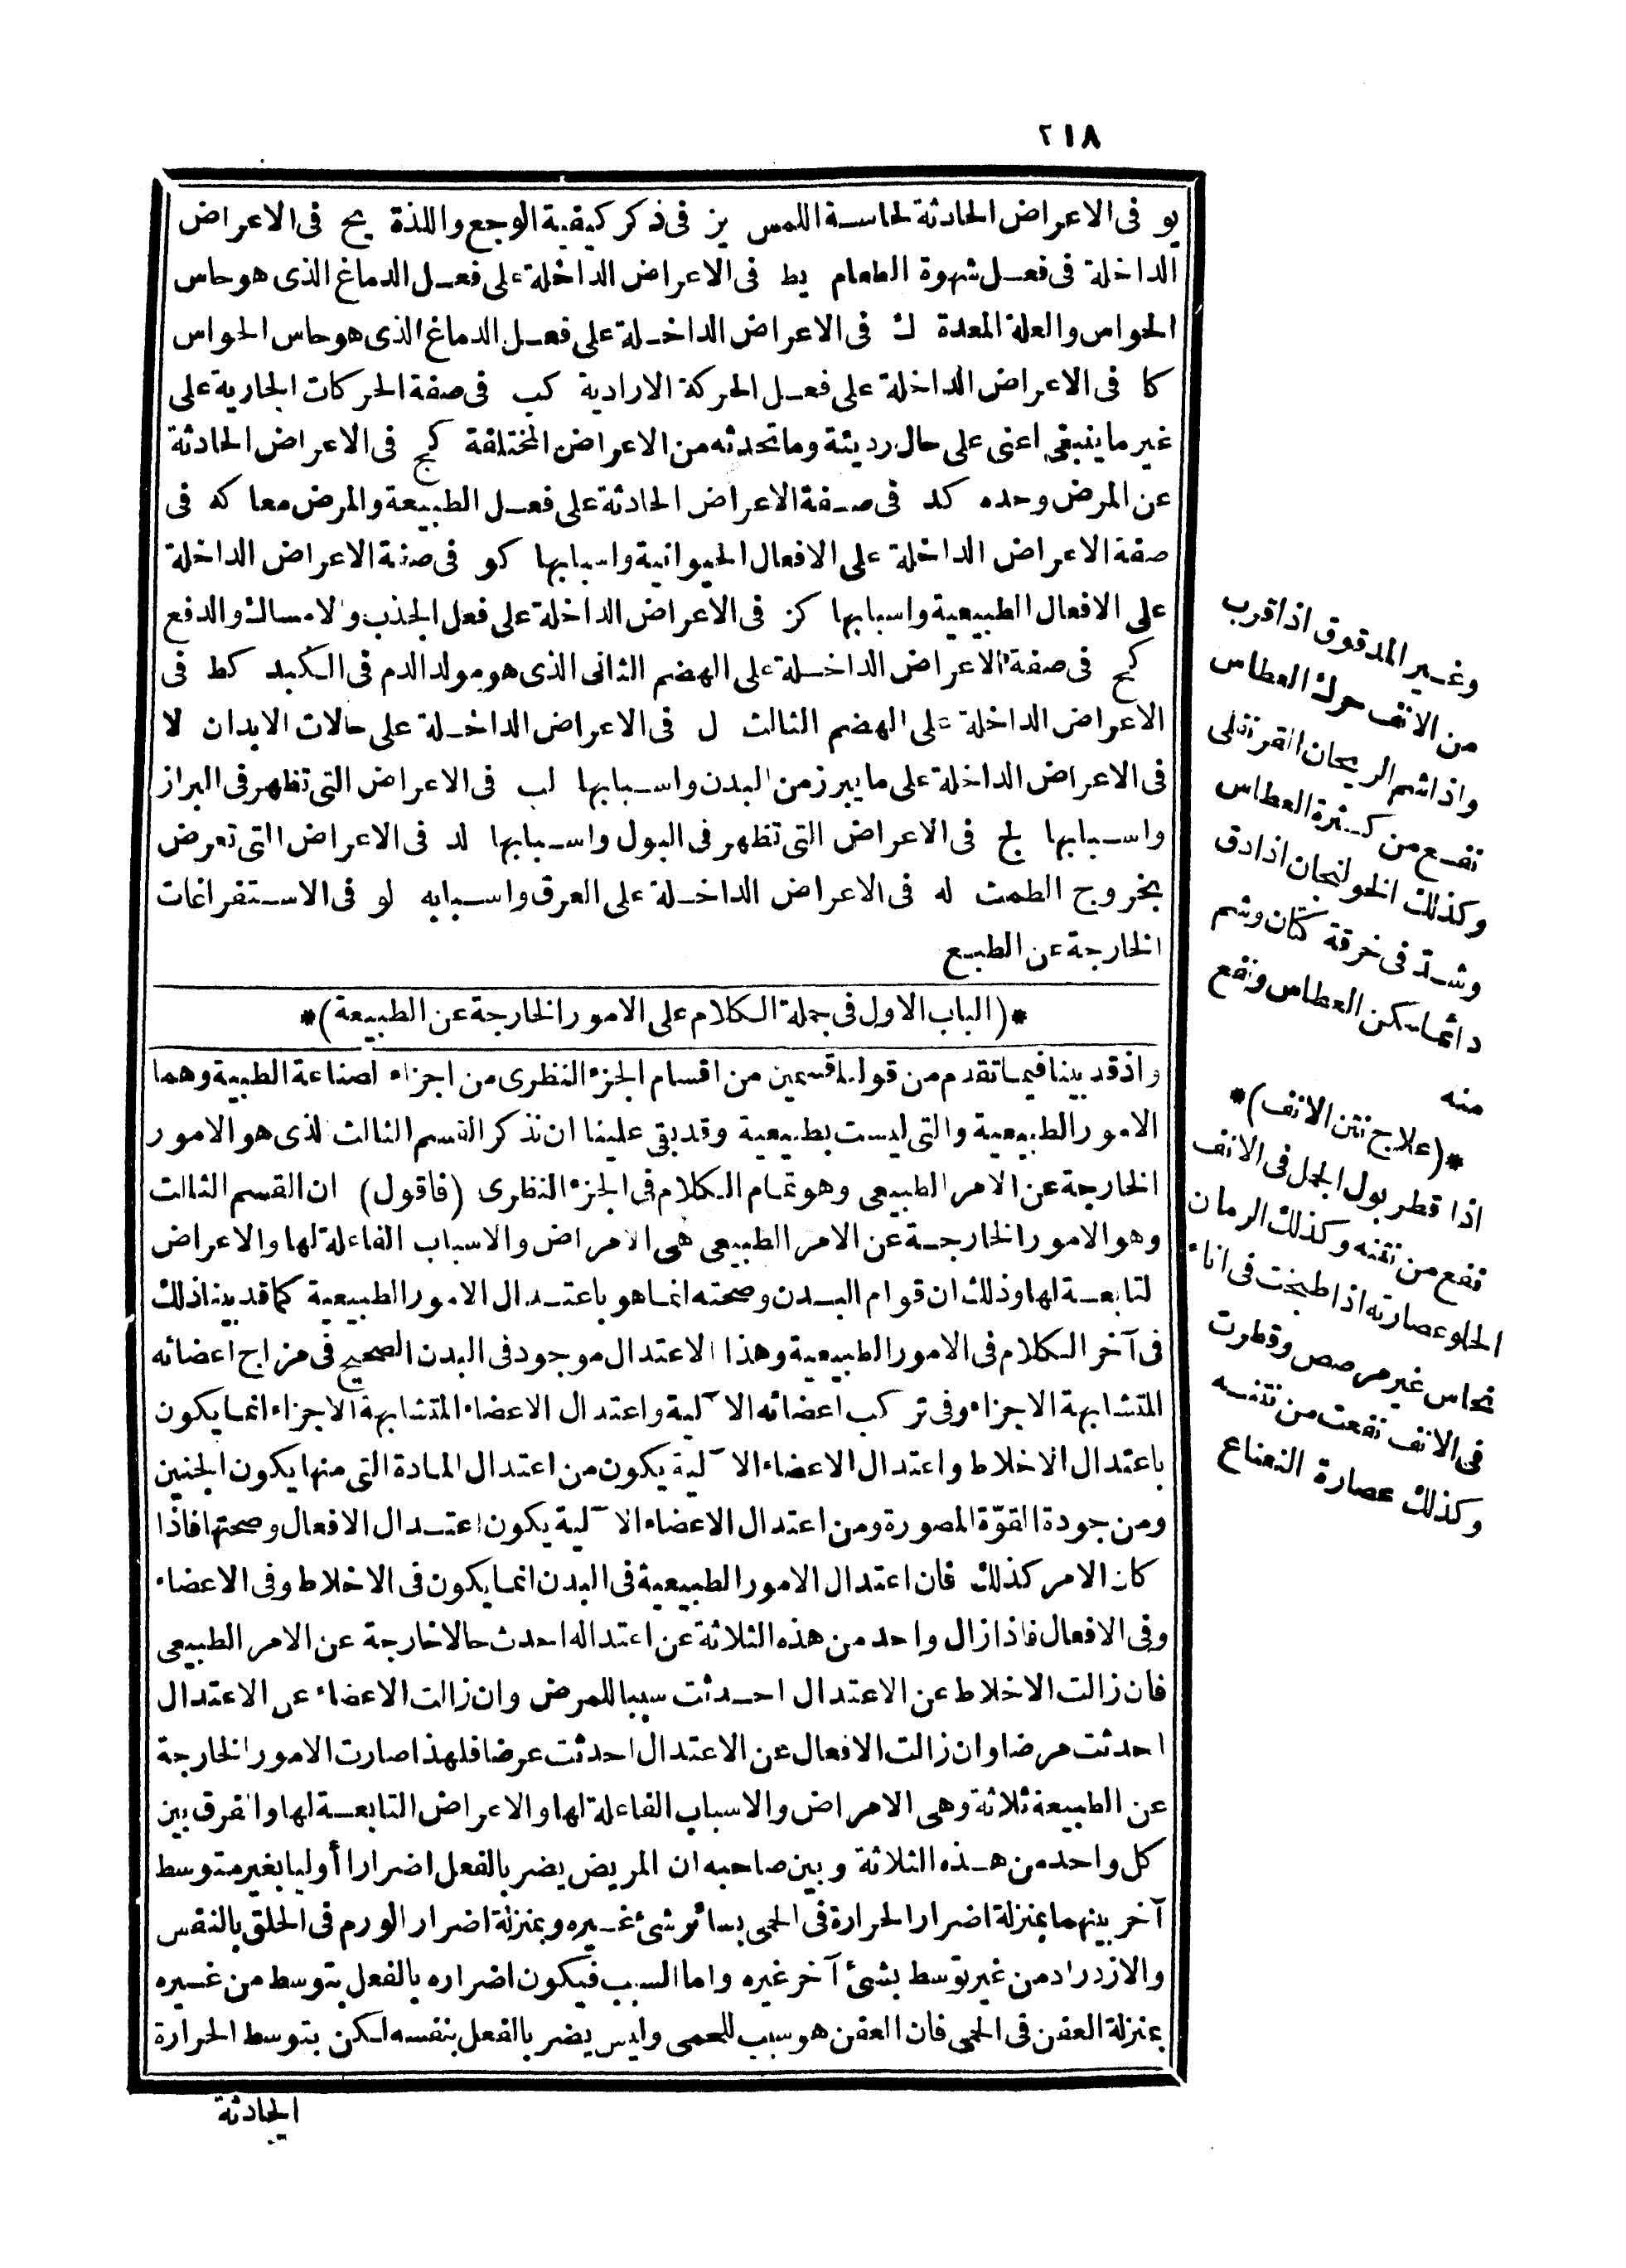 ٢١٨
يو فى الاعراض الحادثة لحاسة اللمس يز فى ذكر كيفية الوجع واللذة يح فى الاعراض
الداخلة فى فعل شهوة الطعام يط فى الاعراض الداخلة على فعل الدماغ الذى هو حاس
الحواس والعلة المعدة ك فى الاعراض الداخلة على فعل الدماغ الذى هو حاس الحواس
كا فى الاعراض الداخلة على فعل الحركة الارادية كب فى صفة الحركات الجارية على
غير ما ينبغى اعنى على حال رديئة وما تحدثه من الاعراض المختلفة كج فى الاعراض الحادثة
عن المرض وحده كد فى صفة الاعراض الحادثة على فعل الطبيعة والمرض معا كه فى
صفة الاعراض الداخلة على الافعال الحيوانية واسبابها كو فى صفة الاعراض الداخلة
على الافعال الطبيعية واسبابها كز فى الاعراض الداخلة على فعل الجذب والامساك والدفع
كح فى صفة الاعراض الداخلة على الهضم الثانى الذى هو مولد الدم فى الكبد كط فى
الاعراض الداخلة على الهضم الثالث ل فى الاعراض الداخلة على حالات الابدان لا
فى الاعراض الداخلة على ما يبرز من البدن واسبابها لب فى الاعراض التى تظهر فى البراز
واسبابها لج فى الاعراض التى تظهر فى البول واسبابها لد فى الاعراض التى تعرض
بخروج الطمث له فى الاعراض الداخلة على العرق واسبابه لو فى الاستفراغات
الخارجة عن الطبع
*(الباب الاول فى جملة الكلام على الامور الخارجة عن الطبيعة)*
واذ قد بينا فيما تقدم من قولنا قسمين من اقسام الجزء النظرى من اجزاء اصناعة الطبية وهما
الامور الطبيعية والتى ليست بطبيعية وقد بقى علينا ان نذكر القسم الثالث لذى هو الامور
الخارجة عن الامر الطبيعى وهو تمام الكلام فى الجزء النظرى (فاقول) ان القسم الثالث
وهو الامور الخارجة عن الامر الطبيعى هى الامراض والاسباب الفاعلة لها والاعراض
لتابعة لها وذلك ان قوام البدن وصحته انما هو باعتدال الامور الطبيعية كما قد بينا ذلك
فى آخر الكلام فى الامور الطبيعية وهذا الاعتدال موجود فى البدن الصحيح فى مزاج اعضائه
المتشابهة الاجزاء وفى تركيب اعضائه الآلية واعتدال الاعضاء المتشابهة الاجزاء انما يكون
باعتدال الاخلاط واعتدال الاعضاء الآلية يكون من اعتدال المادة التى منها يكون الجنين
ومن جودة القوّة المصورة ومن اعتدال الاعضاء الآلية يكون اعتدال الافعال وصحتها فاذا
كان الامر كذلك فان اعتدال الامور الطبيعية فى البدن انما يكون فى الاخلاط وفى الاعضاء
وفى الافعال فاذا زال واحد من هذه الثلاثة عن اعتداله احدث حالا خارجة عن الامر الطبيعى
فان زالت الاخلاط عن الاعتدال احدثت سببا للمرض وان زالت الاعضاء عن الاعتدال
احدثت مرضا وان زالت الافعال عن الاعتدال احدثت عرضا فلهذا صارت الامور الخارجة
عن الطبيعة ثلاثة وهى الامراض والاسباب الفاعلة لها والاعراض التابعة لها والفرق بين
كل واحد من هذه الثلاثة وبين صاحبه ان المريض يضر بالفعل اضرارا أوليا بغير متوسط
آخر بينهما بمنزلة اضرار الحرارة فى الحمى بسائر شئ غيره وبمنزلة اضرار الورم فى الحلق بالنفس
والازدراد من غير توسط بشئ آخر غيره واما السبب فيكون اضراره بالفعل بتوسط من غيره
بمنزلة العفن فى الحمى فان العفن هو سبب للحمى وليس يضر بالفعل بنفسه لكن بتوسط الحرارة
الحادثة
وغير المدقوق اذا قرب
من الانف حرك العطاس
واذا شم الريحان القرنفلى
نفع من كثرة العطاس
وكذلك الخولنجان اذا دق
وشدّ فى خرقة كتان وشم
دائما سكن العطاس ونفع
منه
*(علاج نتن الانف)*
اذا قطر بول الجمل فى الانف
نفع من نتنه وكذلك الرمان
الحلو عصارته اذا طبخت فى اناء
نحاس غير مرصص وقطرت
فى الانف نفعت من نتنه
وكذلك عصارة النعناع